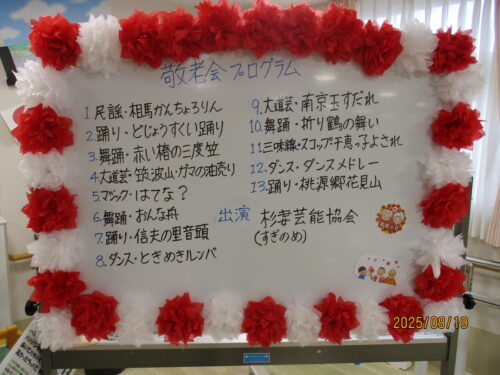 敬老会プログラム
1.民謡・相馬かんちょろりん
2.踊り・どじょうすくい踊り
3.舞踊・赤い椿の三度笠
4.大道芸・筑波山・ガマの油売り
5.マジック・はてな?
6.舞踊・おんな舟
7.踊り・信夫の里音頭
8.ダンス・ときめきルンバ
9.大道芸・南京玉すだれ
10.舞踊・折り鶴の舞い
11.三味線・スコップ千恵っ子よされ
12.ダンス・ダンスメドレー
13.踊り・桃源郷花見山
出演 杉妻芸能協会
(すぎのめ)
2025/09/19